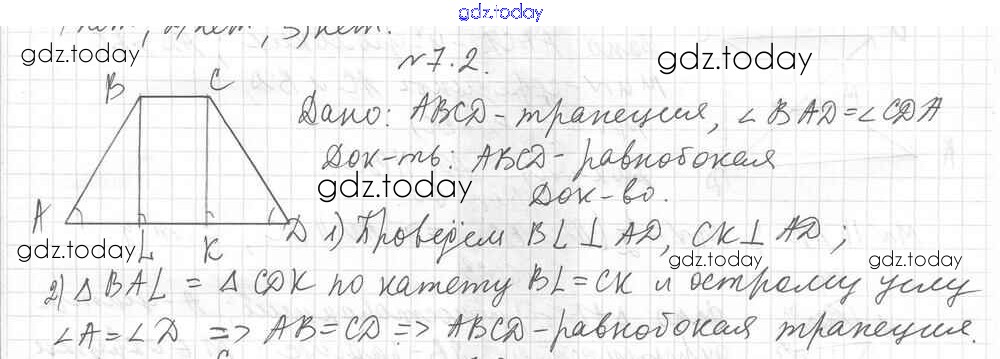 gdz.today
1) нет, 2) нет, 3) нет.
gdz.today
№7.2.
gdz.today
B C
Дано: ABCD - трапеция, ∠BAD=∠CDA
Док-ть: ABCD - равнобокая
gdz.today
Док-во.
A D L K
1) Проведём BL ⊥ AD, CK ⊥ AD;
gdz.today gdz.today gdz.today
2) △BAL = △CDK по катету BL=CK и острому углу
∠A=∠D => AB=CD => ABCD - равнобокая трапеция.